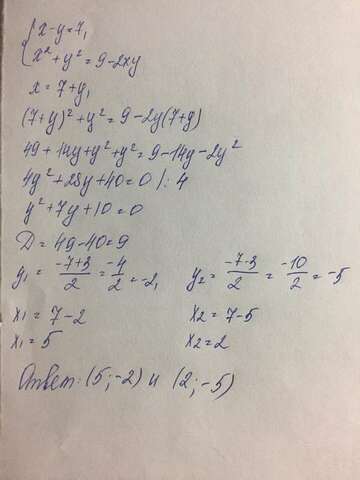 { x-y=7,
x²+y²=9-2xy
x=7+y,
(7+y)²+y²=9-2y(7+y)
49+14y+y²+y²=9-14y-2y²
4y²+28y+40=0 |:4
y²+7y+10=0
D=49-40=9
y₁=(-7+3)/2=-4/2=-2, y₂=(-7-3)/2=-10/2=-5
x₁=7-2 x₂=7-5
x₁=5 x₂=2
Ответ: (5;-2) и (2;-5)